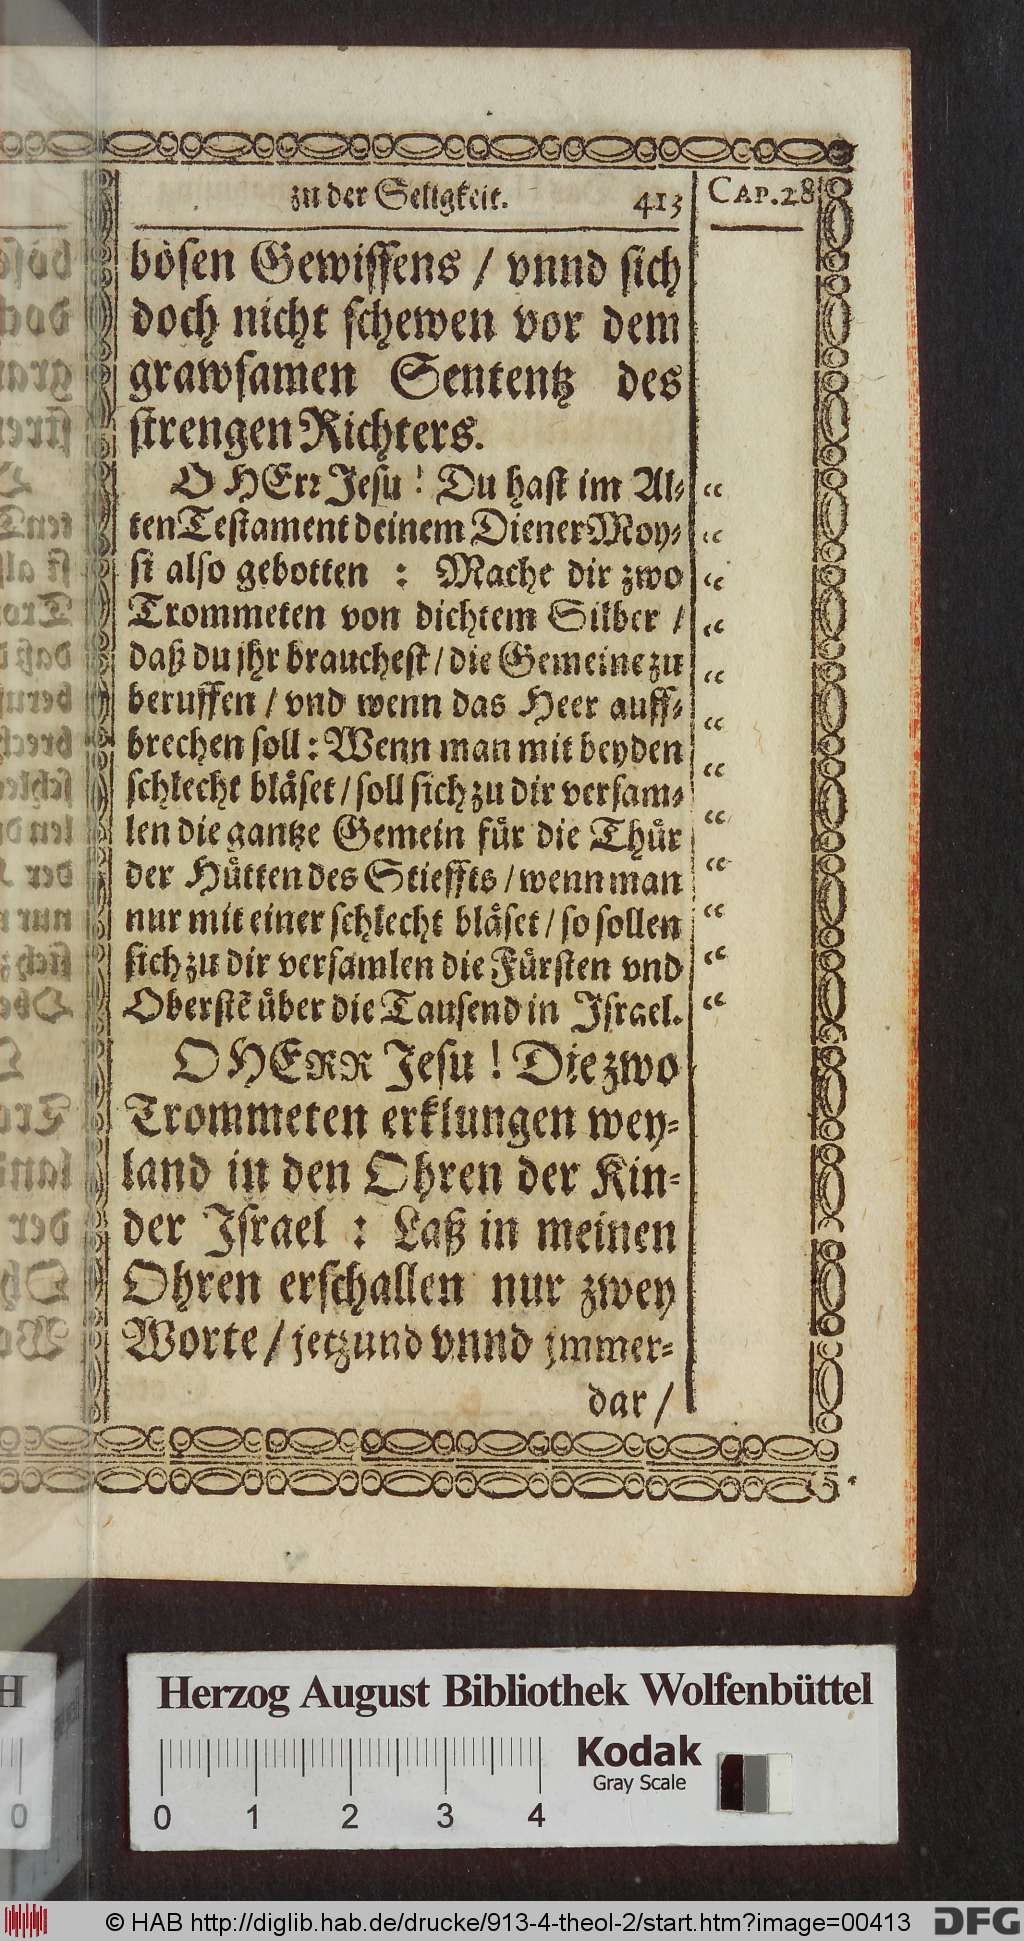 zu der Seligkeit. 413 CAP.28
bösen Gewissens / vnnd sich
doch nicht schewen vor dem
grawsamen Sententz des
strengen Richters.
O HErr Jesu! Du hast im Al-
ten Testament deinem Diener Moy-
si also gebotten : Mache dir zwo
Trommeten von dichtem Silber /
daß du jhr brauchest / die Gemeine zu
beruffen / vnd wenn das Heer auff-
brechen soll : Wenn man mit beyden
schlecht blåset / soll sich zu dir versam-
len die gantze Gemein fůr die Thůr
der Hůtten des Stieffts / wenn man
nur mit einer schlecht blåset / so sollen
sich zu dir versamlen die Fůrsten vnd
Oberstẽ ůber die Tausend in Israel.
O HERR Jesu! Die zwo
Trommeten erklungen wey-
land in den Ohren der Kin-
der Israel : Laß in meinen
Ohren erschallen nur zwey
Worte / jetzund vnnd jmmer-
dar /
Herzog August Bibliothek Wolfenbüttel
Kodak
Gray Scale
0 1 2 3 4
© HAB http://diglib.hab.de/drucke/913-4-theol-2/start.htm?image=00413
DFG